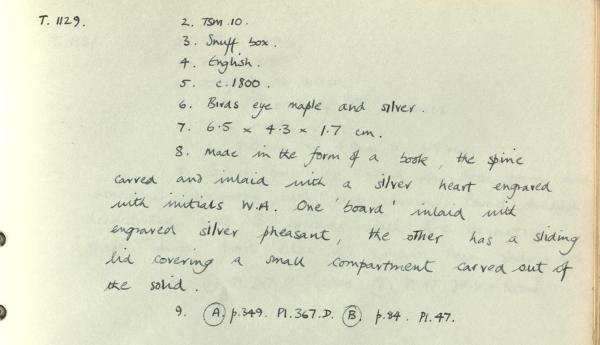 T. 1129. 2. TSM.10.
3. Snuff box.
4. English.
5. c.1800.
6. Birds eye maple and silver.
7. 6.5 x 4.3 x 1.7 cm.
8. Made in the form of a book, the spine
carved and inlaid with a silver heart engraved
with initials W.A. One 'board' inlaid with
engraved silver pheasant, the other has a sliding
lid covering a small compartment carved out of
the solid.
9. (A) p.349. Pl.367.D. (B) p.84. Pl.47.